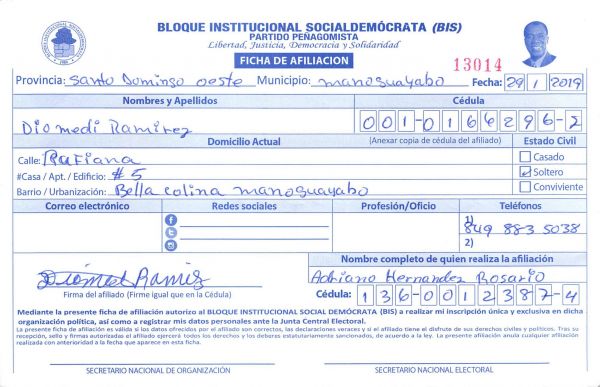 BLOQUE INSTITUCIONAL SOCIALDEMÓCRATA (BIS)
PARTIDO PEÑAGOMISTA
Libertad, Justicia, Democracia y Solidaridad
FICHA DE AFILIACION
13014
Provincia: Santo Domingo oeste Municipio: manoguayabo Fecha: 29 1 2019
Nombres y Apellidos Cédula
Diomedi Ramirez 001-0164296-2
(Anexar copia de cédula del afiliado)
Domicilio Actual Estado Civil
Calle: Rafiana Casado
#Casa / Apt. / Edificio: #5 Soltero
Barrio / Urbanización: Bella colina manoguayabo Conviviente
Correo electrónico Redes sociales Profesión/Oficio Teléfonos
1) 849 883 5038
2)
Nombre completo de quien realiza la afiliación
Adriano Hernandez Rosario
Firma del afiliado (Firme igual que en la Cédula) Cédula: 136-0012387-4
Mediante la presente ficha de afiliación autorizo al BLOQUE INSTITUCIONAL SOCIAL DEMÓCRATA (BIS) a realizar mi inscripción única y exclusiva en dicha
organización política, así como a registrar mis datos personales ante la Junta Central Electoral.
La presente ficha de afiliación es válida si los datos ofrecidos por el afiliado son correctos, las declaraciones veraces y si el afiliado tiene el disfrute de sus derechos civiles y políticos. Tras su
recepción, sello y firmas autorizadas el afiliado ejercerá todos los derechos y los deberes estatutariamente sancionados, de acuerdo a la ley. La presente afiliación anula cualquier afiliación
realizada con anterioridad a la fecha que aparece en esta ficha.
SECRETARIO NACIONAL DE ORGANIZACIÓN SECRETARIO NACIONAL ELECTORAL